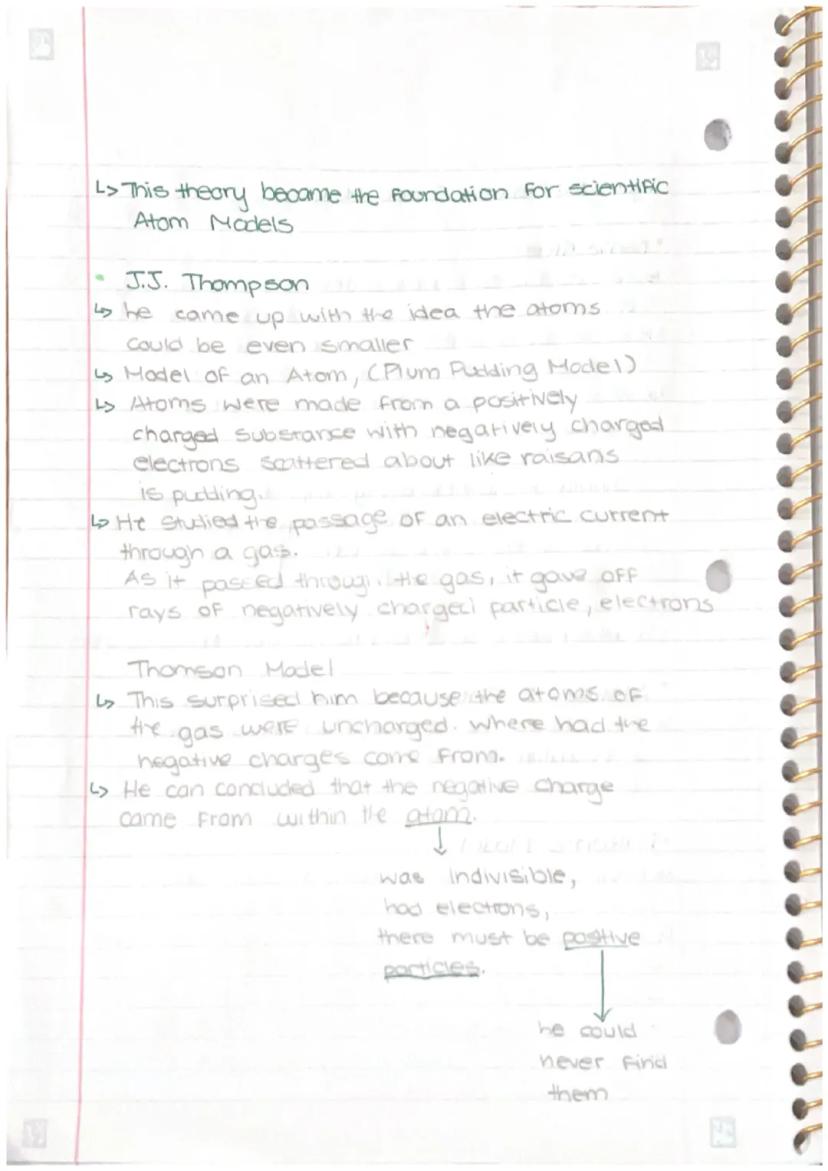 ↳ This theory became the foundation for scientific
Atom Models
• J.J. Thompson
↳ he came up with the idea the atoms
could be even smaller
↳ Model of an Atom, (Plum Pudding Model)
↳ Atoms were made from a positively
charged substance with negatively charged
electrons scattered about like raisans
is pudding.
↳ He studied the passage of an electric current
through a gas.
As it passed through. the gas, it gave off
rays of negatively charged particle, electrons
Thomson Model
↳ This surprised him because the atoms of
the gas were uncharged. Where had the
negative charges come from.
↳ He can concluded that the negative charge
came from within the atom.
↓
was indivisible,
had electrons,
there must be positive
particles.
↓
he could
never find
them